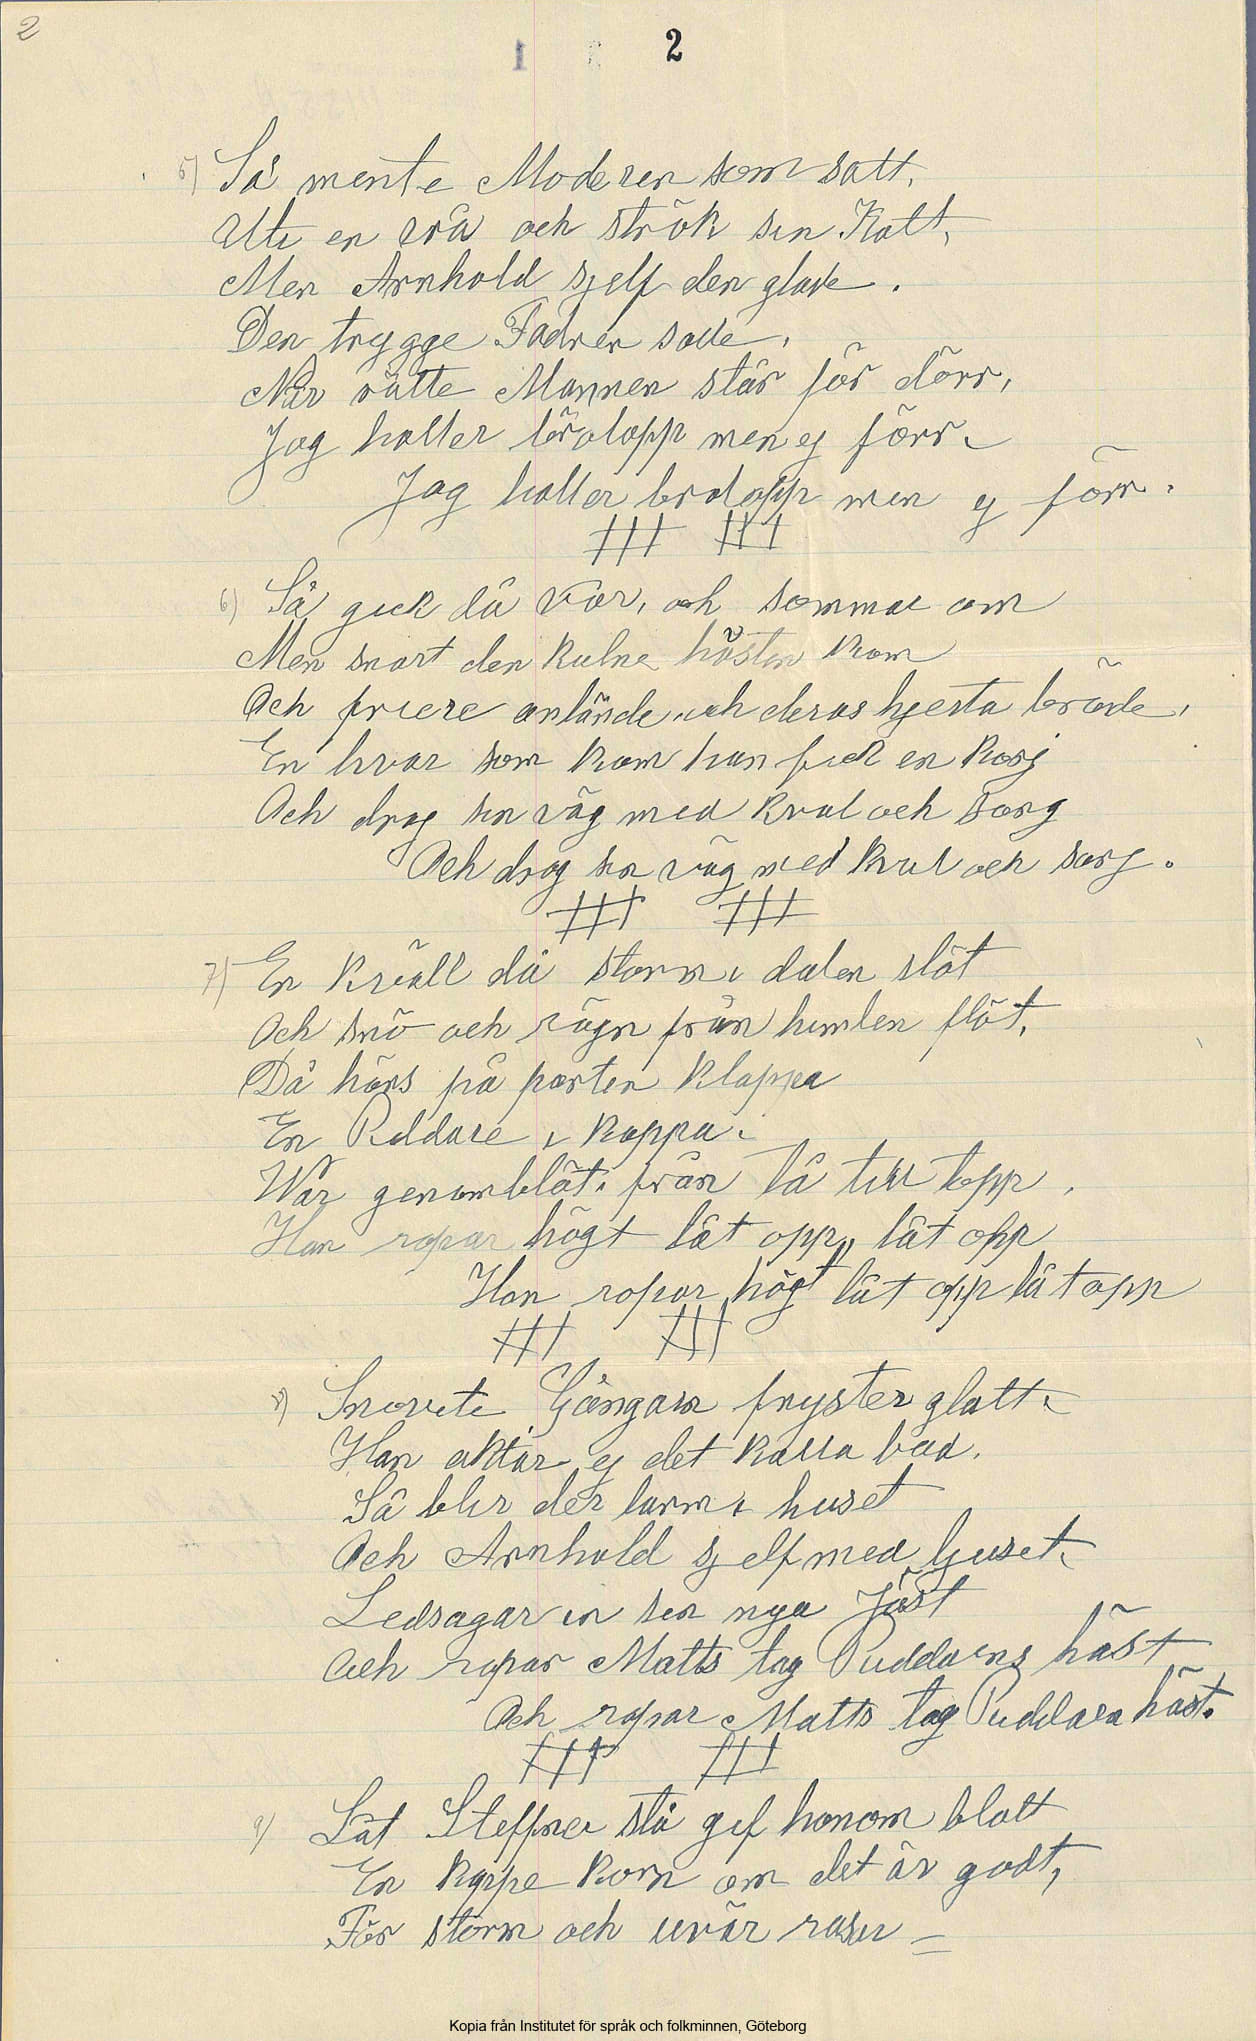 2
1 2
5) Så mente Moderen som satt,
Uti en vrå och strök sin Katt,
Men Arnhold sjelf den glade.
Den trygge Fadren sade,
När rätte Mannen står för dörr,
Jag haller brölopp men ej förr.
Jag haller brölopp men ej förr.
6) Så gick då vår, och sommar om
Men snart den kulne hösten kom
Och friere anlände och deras hjerta brände,
En hvar som kom han fick en korj
Och drog sin väg med kval och sorg
Och drog sin väg med kval och sorg.
7) En kväll då storm i dalen slöt
Och snö och rägn från himlen flöt,
Då hörs på porten klappa
En Riddare i kappa.
War genomblöt från tå till topp.
Han ropar högt låt opp, låt opp
Han ropar högt låt opp låt opp
8) Snovete Gångarn fryster glatt.
Han aktar ej det kalla bad.
Så blir der larm i huset
Och Arnhold sjelf med ljuset.
Ledsagar in sin nya Jäst
Och ropar Matts tag Puddarns häst
Och ropar Matts tag Puddara häst.
9) Låt Steffnei stå gif honom blott
En kappe korn om det är godt,
För storm och uvär rasar
Kopia från Institutet för språk och folkminnen, Göteborg